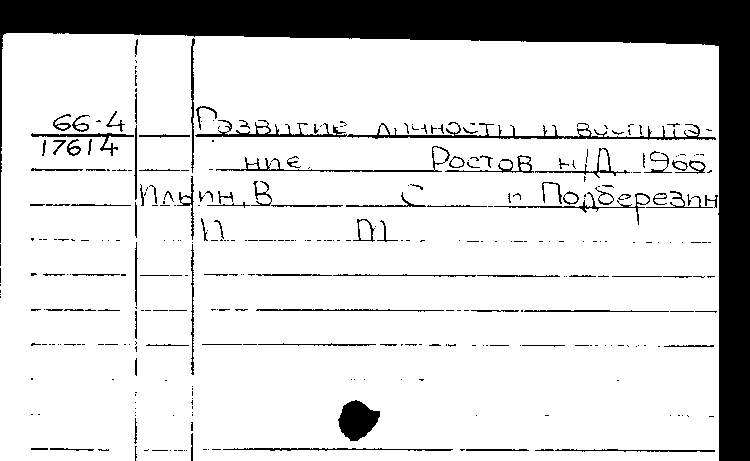 66-4 Развитие личности и воспита-
17614 ние. Ростов н/Д. 1966.
Ильин, В С и Подберезин
И М